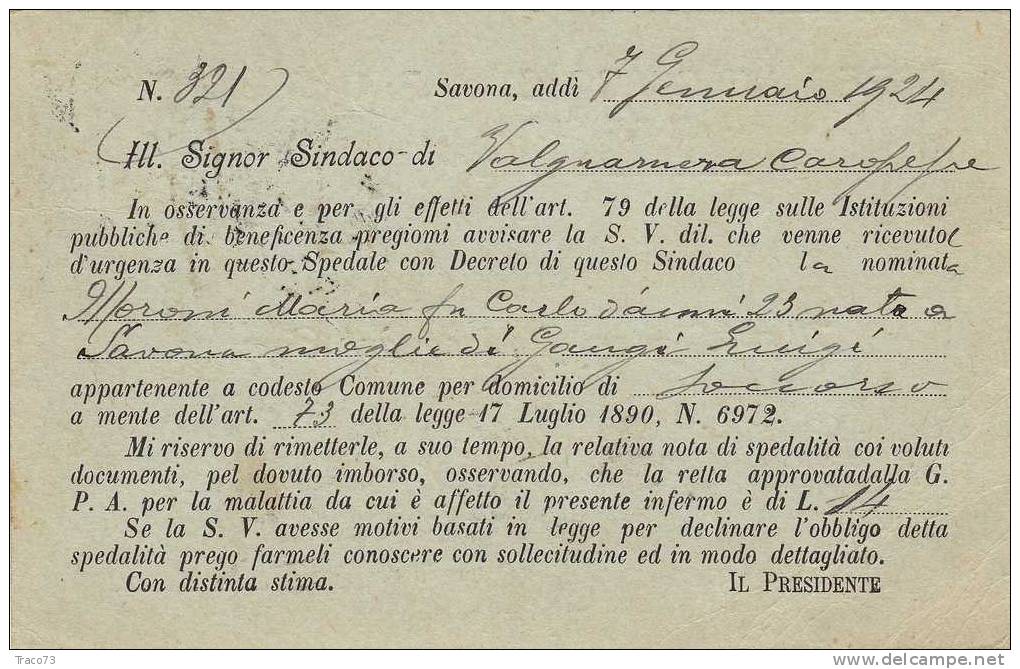 N. 321 Savona, addì 7 Gennaio 1924
Ill. Signor Sindaco di Valguarnera Caropepe
In osservanza e per gli effetti dell'art. 79 della legge sulle Istituzioni
pubbliche di beneficenza pregiomi avvisare la S. V. dil. che venne ricevuto
d'urgenza in questo Spedale con Decreto di questo Sindaco la nominata
Moroni Maria fu Carlo d'anni 23 nata a
Savona moglie di Gangi Luigi
appartenente a codesto Comune per domicilio di soccorso
a mente dell'art. 73 della legge 17 Luglio 1890, N. 6972.
Mi riservo di rimetterle, a suo tempo, la relativa nota di spedalità coi voluti
documenti, pel dovuto imborso, osservando, che la retta approvatadalla G.
P. A. per la malattia da cui è affetto il presente infermo è di L. 14
Se la S. V. avesse motivi basati in legge per declinare l'obbligo detta
spedalità prego farmeli conoscere con sollecitudine ed in modo dettagliato.
Con distinta stima. IL PRESIDENTE
Traco73
www.delcampe.net